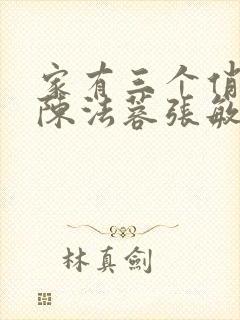 家有三个俏
陈法蓉张敏
林真剑